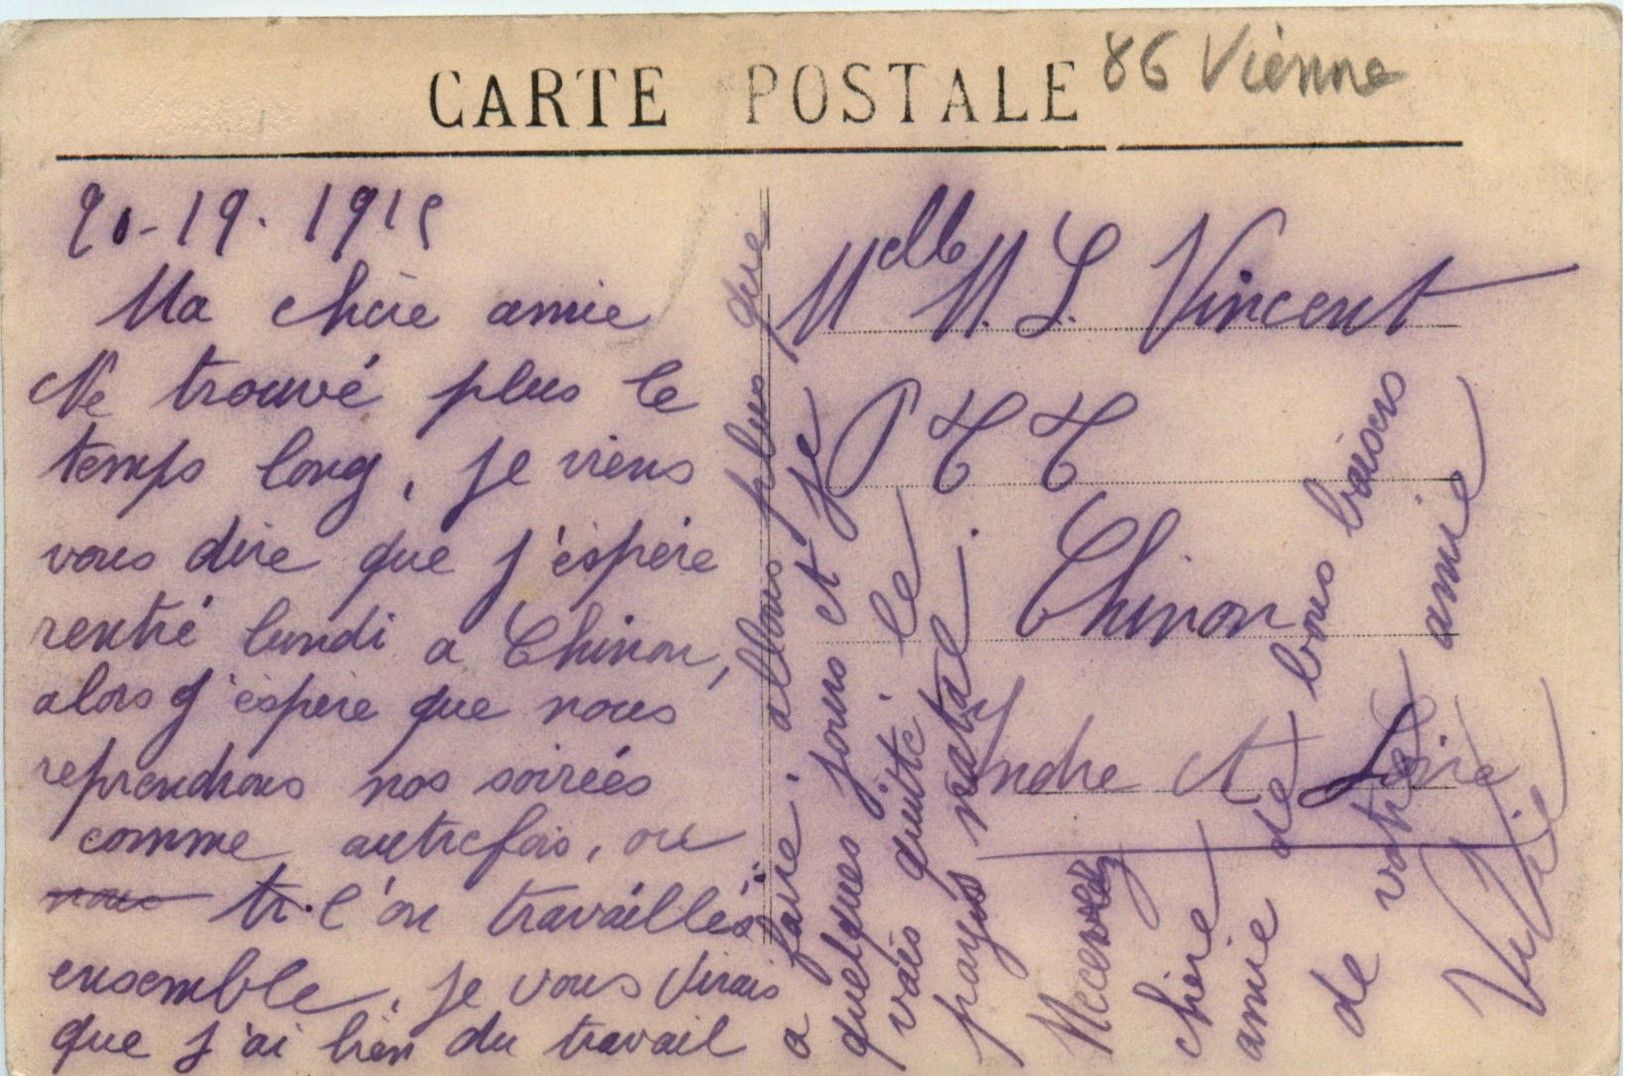 CARTE POSTALE
86 Vienne
-19. 1915
Ma chère amie
Ne trouvé plus le
temps long, je viens
vous dire que j'éspére
rentré lundi a Chinon,
alors j'éspére que nous
reprendrons nos soirées
comme autrefois, ou
l'on travaillés
ensemble. je vous dirais
que j'ai bien du travail
a faire. allons plus que
quelques jours et je
vais quitté le
pays natal.
Recevez
chère
amie de bons baisers
de votre amie
Melle M. L. Vincent
P T T
Chinon
Indre et Loire